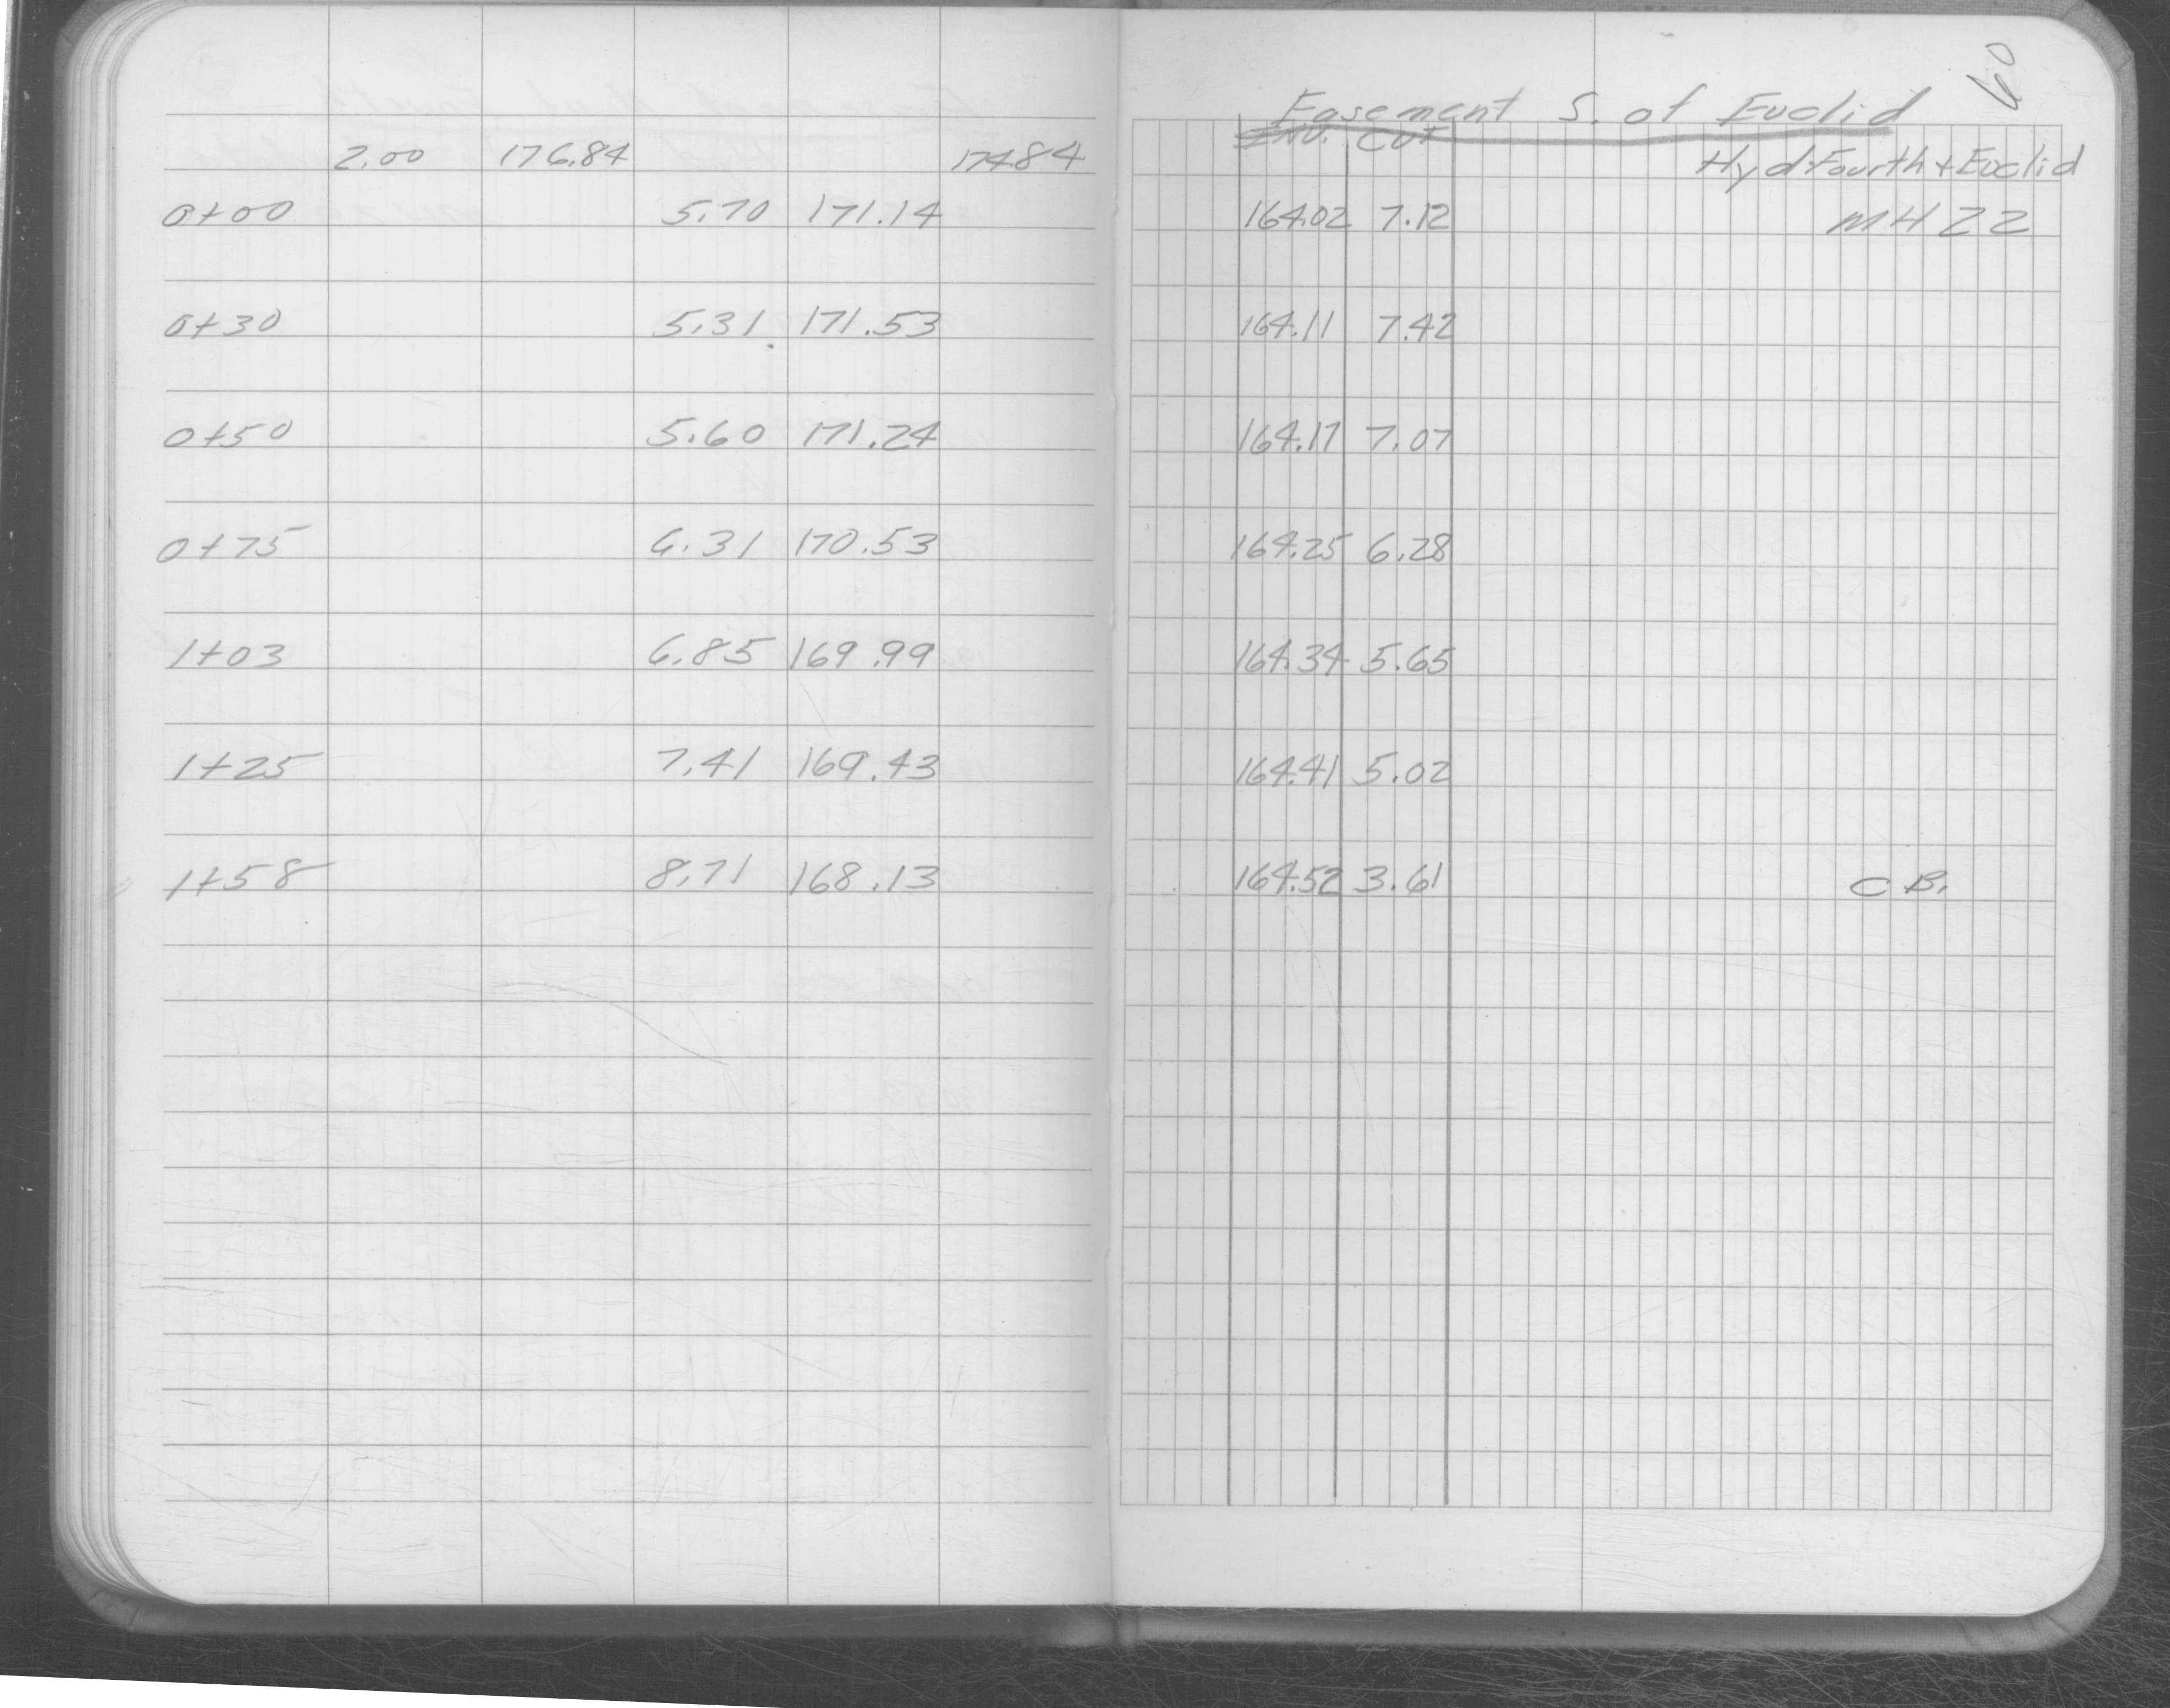 60
Easement S. of Euclid
INV. CUT
2.00 176.84 174.84 Hyd Fourth + Euclid
0+00 5.70 171.14 164.02 7.12 MH 22
0+30 5.31 171.53 164.11 7.42
0+50 5.60 171.24 164.17 7.07
0+75 6.31 170.53 164.25 6.28
1+03 6.85 169.99 164.34 5.65
1+25 7.41 169.43 164.41 5.02
1+58 8.71 168.13 164.52 3.61 C.B.